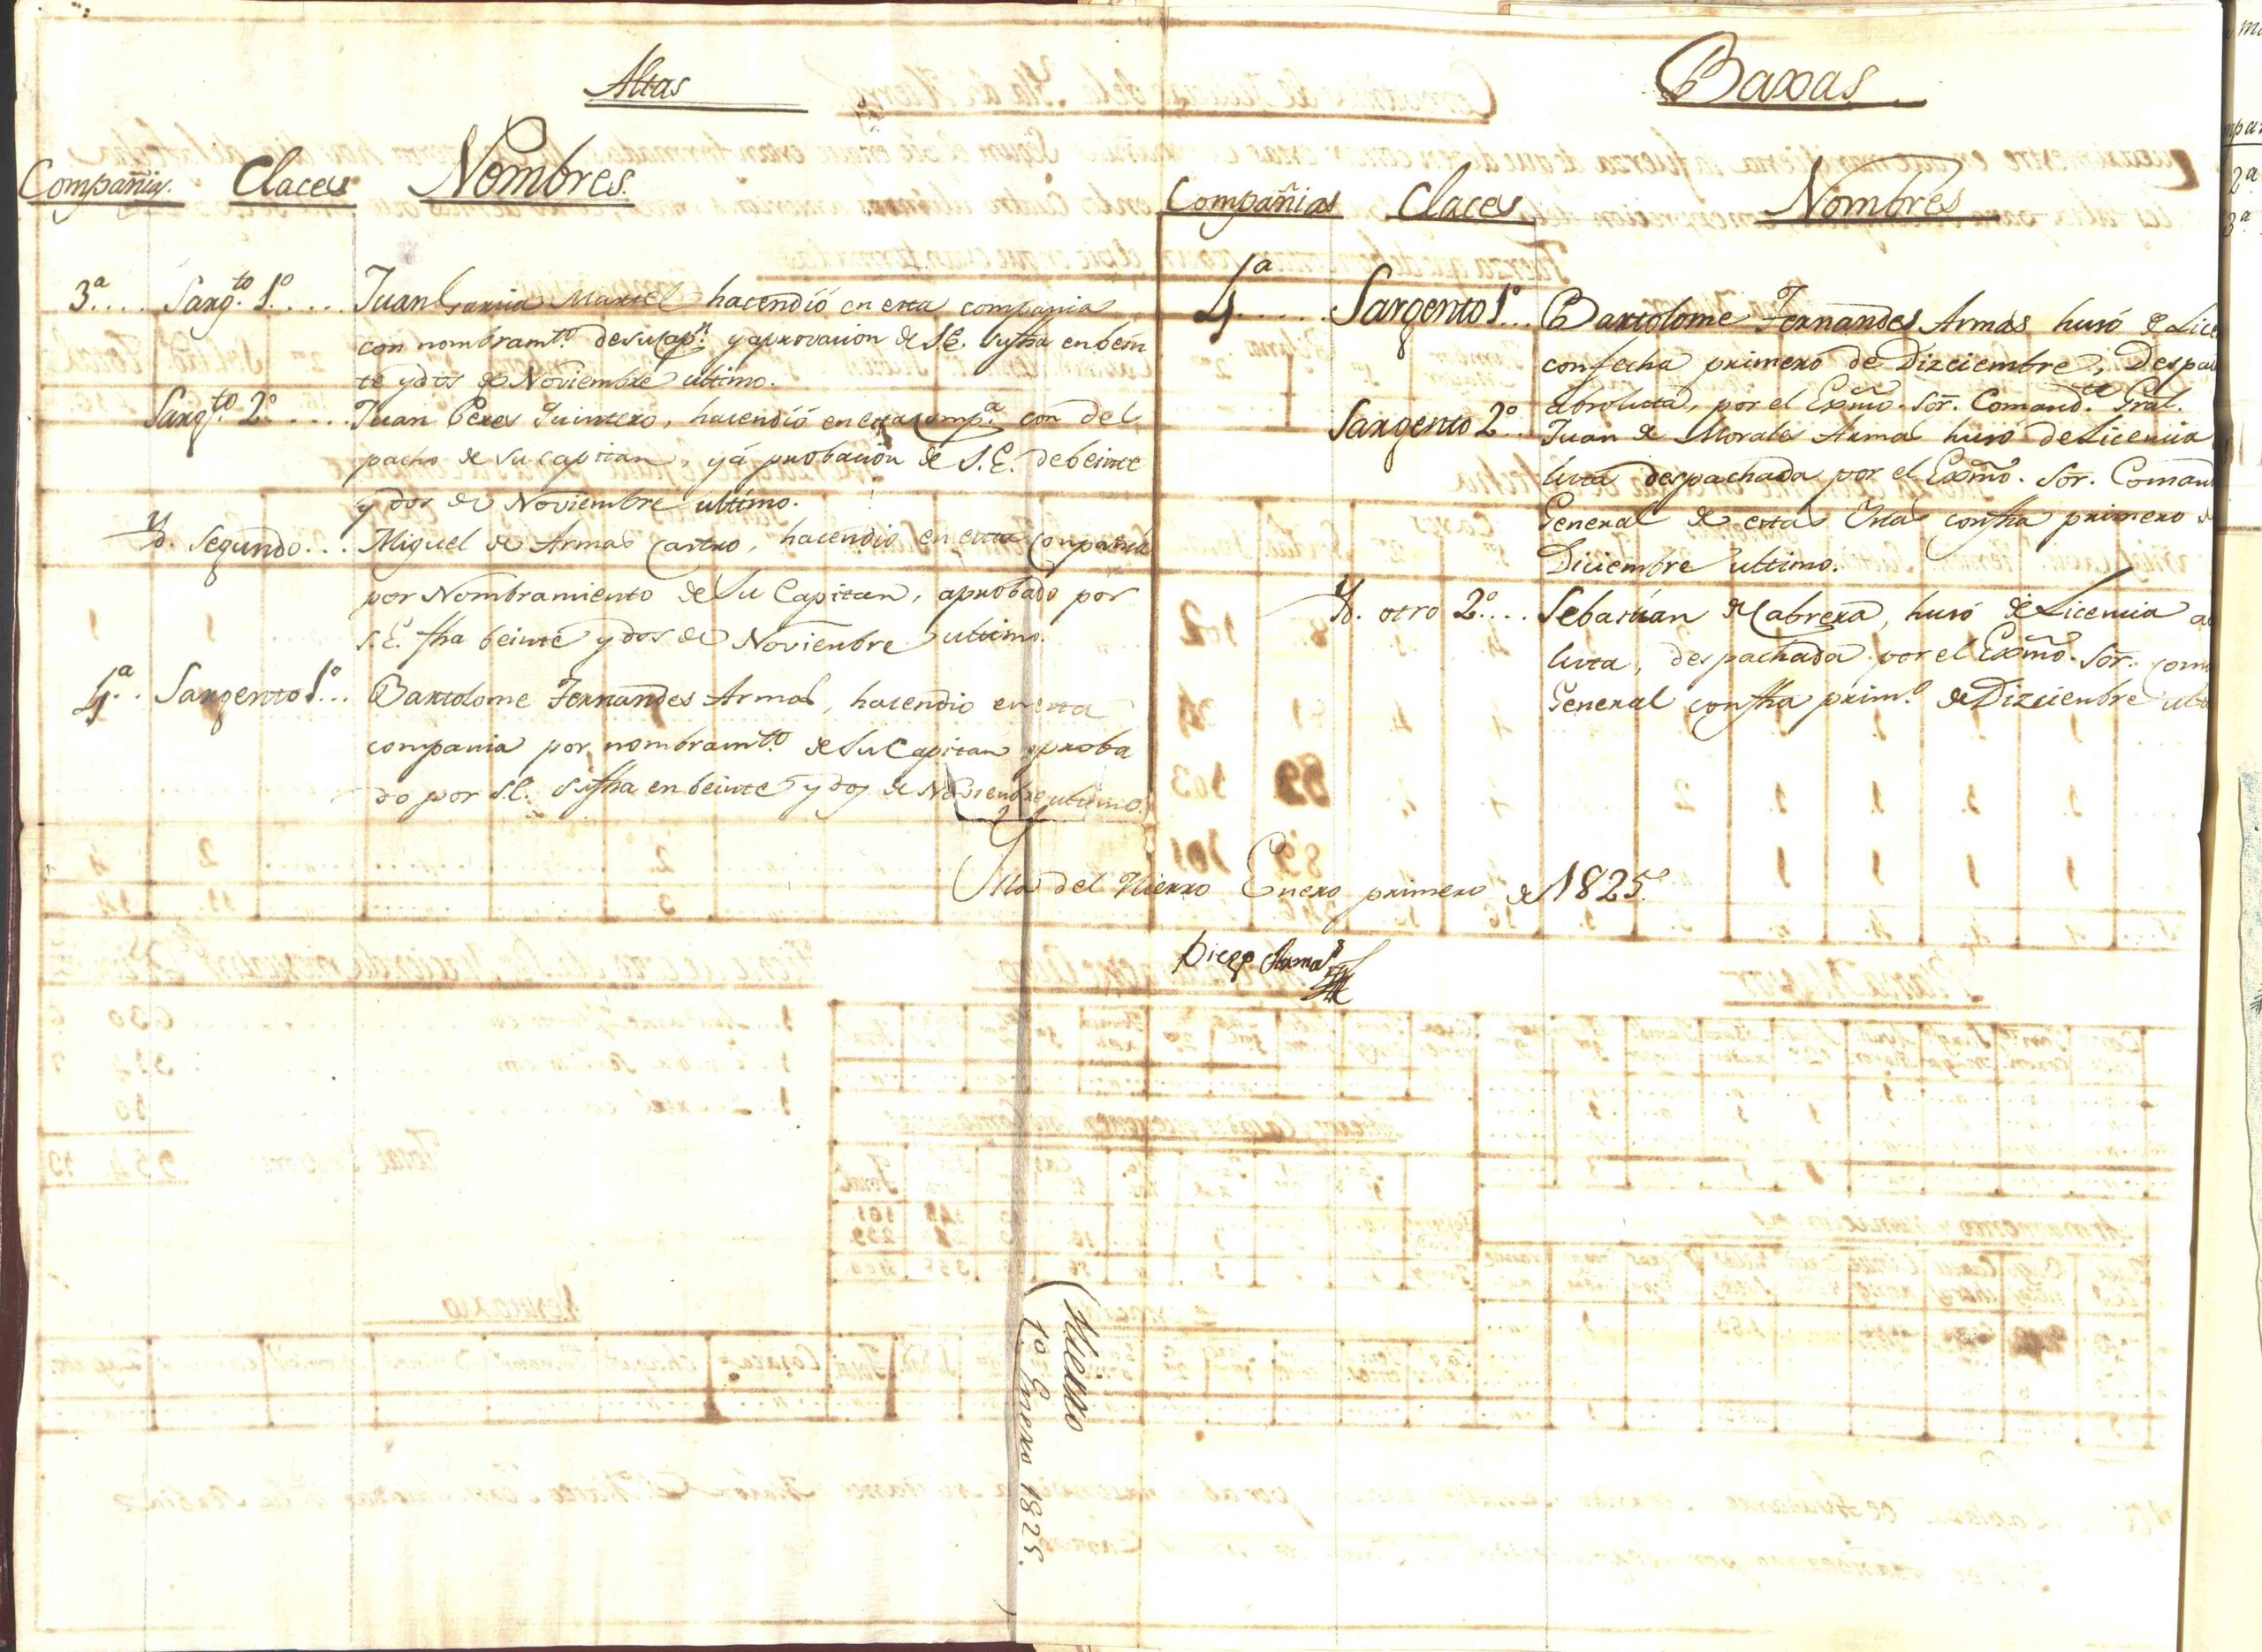 Altas
Compañias. Claces Nombres.
3ª.... Sargto. 1º..... Juan Garcia Martel hacendió en esta compania
con nombramto. de su Capn. y aprovacion de S.E. su fha en bein
te y dos de Noviembre ultimo.
Sargto. 2º..... Juan Peres Quintero, hacendió en esta compª. con des
pacho de su capitan, y á probacion de S.E. de beinte
y dos de Noviembre ultimo.
Yd. Segundo... Miguel de Armas Castro, hacendio en esta conpañia
por Nombramiento de Su Capitan, aprobado por
S.E. fha beinte y dos de Noviembre ultimo.
4ª.. Sargento 1º... Bartolome Fernandes Armas, hacendio en esta
compania por nombramto. de Su Capitan aproba
do por S.E. su fha en beinte y dos de Noviembre ultimo.
Baxas
Compañias Claces Nombres
4ª..... Sargento 1º... Bartolome Fernandes Armas husó de Lice
con fecha primero de Dizciembre, Despac
absoluta, por el Exmo. Sor. Comandte. Gral.
Sargento 2º.. Juan de Morales Armas husó de Licencia
luta despachada por el Exmo. Sor. Comand
General de estas Yslas con fha primero d
Diciembre ultimo.
Yd. otro 2º.... Sebastian de Cabrera, husó de Licencia a
luta, despachada por el Exmo. Sor. Com
General con fha primº. de Dizciembre ulti
Ysla del Hierro Enero primero de 1825.
Diego Armas
Hierro
1º Enero 1825.